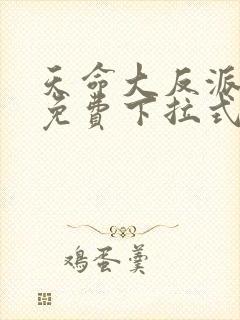 天命大反派
免费下拉式
鸡蛋羹